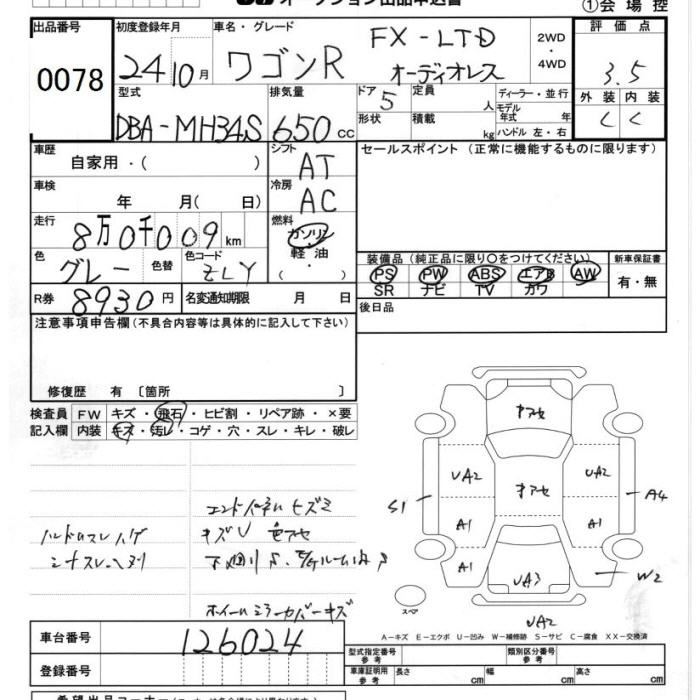 オークション出品申込書
①会場控
出品番号 初度登録年月 車名・グレード 評価点
0078 24年10月 ワゴンR FX-LTD オーディオレス 2WD・4WD 3.5
型式 排気量 ドア 5 定員 人 ディーラー・並行 外装 内装
DBA-MH34S 650cc 形状 積載 kg モデル年式 年 ハンドル 左・右 C C
車歴 自家用・( ) シフト AT セールスポイント (正常に機能するものに限ります)
車検 年 月( 日) 冷房 AC
走行 8万0千009km 燃料 ガソリン
色 グレー 色替 色コード ZLY 軽油・( )
装備品 (純正品に限り○をつけてください) 新車保証書
PS PW ABS エアB AW 有・無
SR ナビ TV カワ
R券 8930円 名変通知期限 月 日 後日品
注意事項申告欄(不具合内容等は具体的に記入して下さい)
修復歴 有 〔箇所 〕
検査員 FW キズ・飛石・ヒビ割・リペア跡・×要
記入欄 内装 キズ・汚レ・コゲ・穴・スレ・キレ・破レ
キズU 色アセ
ホイールミラーカバーキズ
オアセ
UA2 オアセ UA2
S1 A4
A1 A1
A1 W2
UA3
スペア
UA2
A−キズ E−エクボ U−凹み W−補修跡 S−サビ C−腐食 XX−交換済
車台番号 126024 型式指定番号 参考 類別区分番号 参考
登録番号 車庫証明用 参考 長さ cm 幅 cm 高さ cm